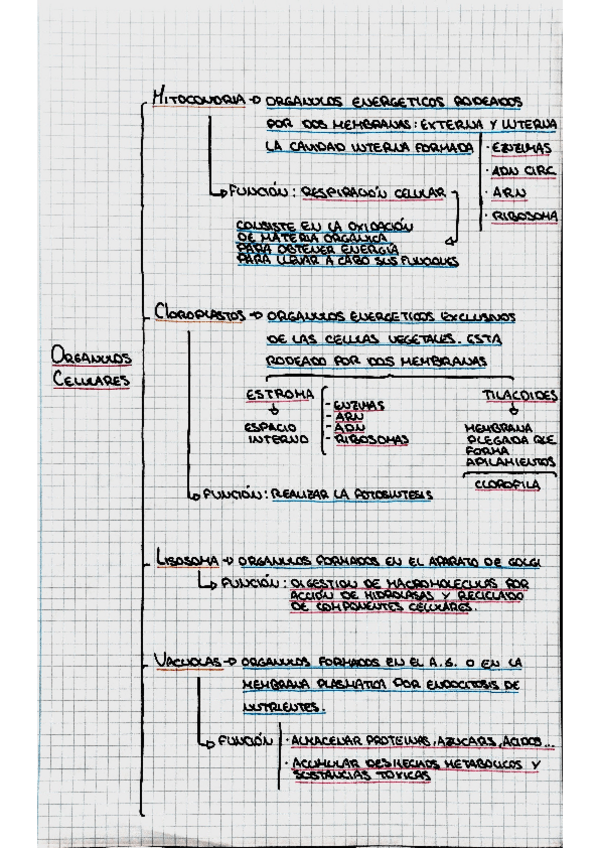 MITOCONDRIA → ORGANULOS ENERGETICOS RODEADOS
POR DOS MEMBRANAS: EXTERNA Y INTERNA
LA CAVIDAD INTERNA FORMADA
· ENZIMAS
· ADN CIRC.
· ARN
· RIBOSOMA
FUNCIÓN: RESPIRACIÓN CELULAR
CONSISTE EN LA OXIDACIÓN
DE MATERIA ORGANICA
PARA OBTENER ENERGÍA
PARA LLEVAR A CABO SUS FUNCIONES
ORGANULOS
CELULARES
CLOROPLASTOS → ORGANULOS ENERGETICOS EXCLUSIVOS
DE LAS CELULAS VEGETALES. ESTA
RODEADO POR DOS MEMBRANAS
ESTROMA
↓
ESPACIO
INTERNO
- ENZIMAS
- ARN
- ADN
- RIBOSOMAS
TILACOIDES
↓
MEMBRANA
PLEGADA QUE
FORMA
APILAMIENTOS
CLOROFILA
FUNCIÓN: REALIZAR LA FOTOSINTESIS
LISOSOMA → ORGANULOS FORMADOS EN EL APARATO DE GOLGI
FUNCIÓN: DIGESTION DE MACROMOLECULAS POR
ACCIÓN DE HIDROLASAS Y RECICLADO
DE COMPONENTES CELULARES.
VACUOLAS → ORGANULOS FORMADOS EN EL A.G. O EN LA
MEMBRANA PLASMATICA POR ENDOCITOSIS DE
NUTRIENTES.
FUNCIÓN
· ALMACENAR PROTEINAS, AZUCARS, ACIDOS...
· ACUMULAR DESHECHOS METABOLICOS Y
SUSTANCIAS TOXICAS